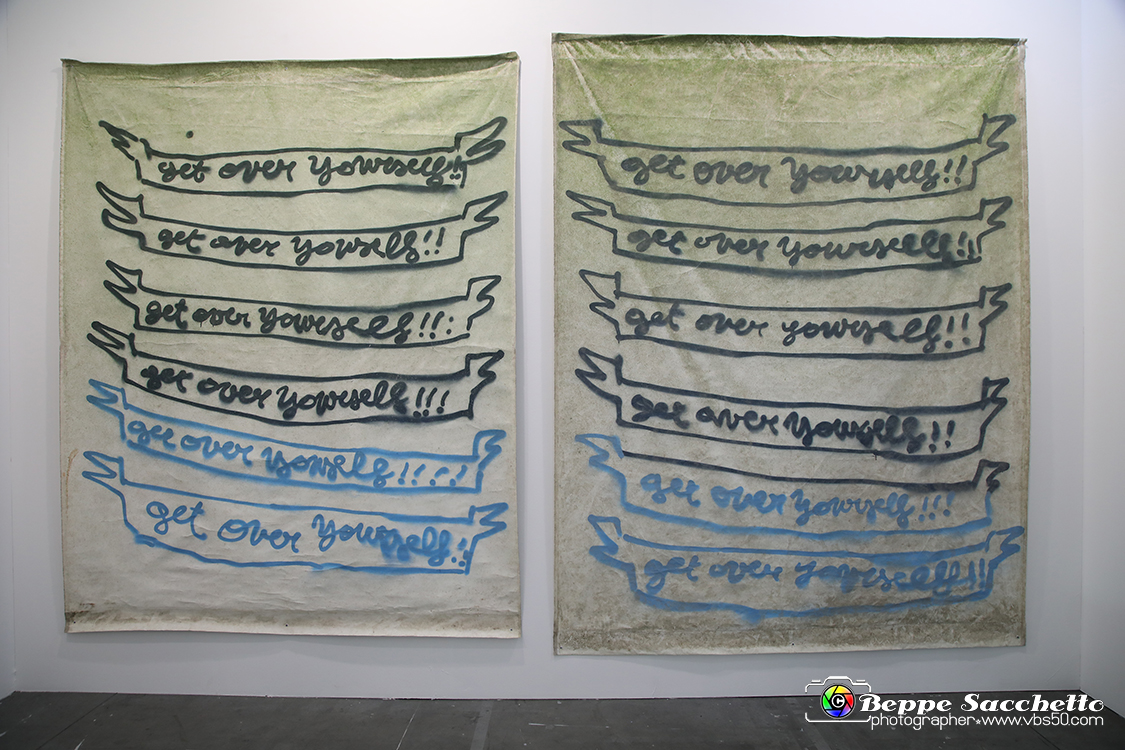 get over yourself!!
get over yourself!!
get over yourself!!!
get over yourself!!!
get over yourself!!!!
get over yourself!!
get over yourself!!
get over yourself!!
get over yourself!!
get over yourself!!
get over yourself!!!
get over yourself!!
© Beppe Sacchetto
photographer•www.vbs50.com